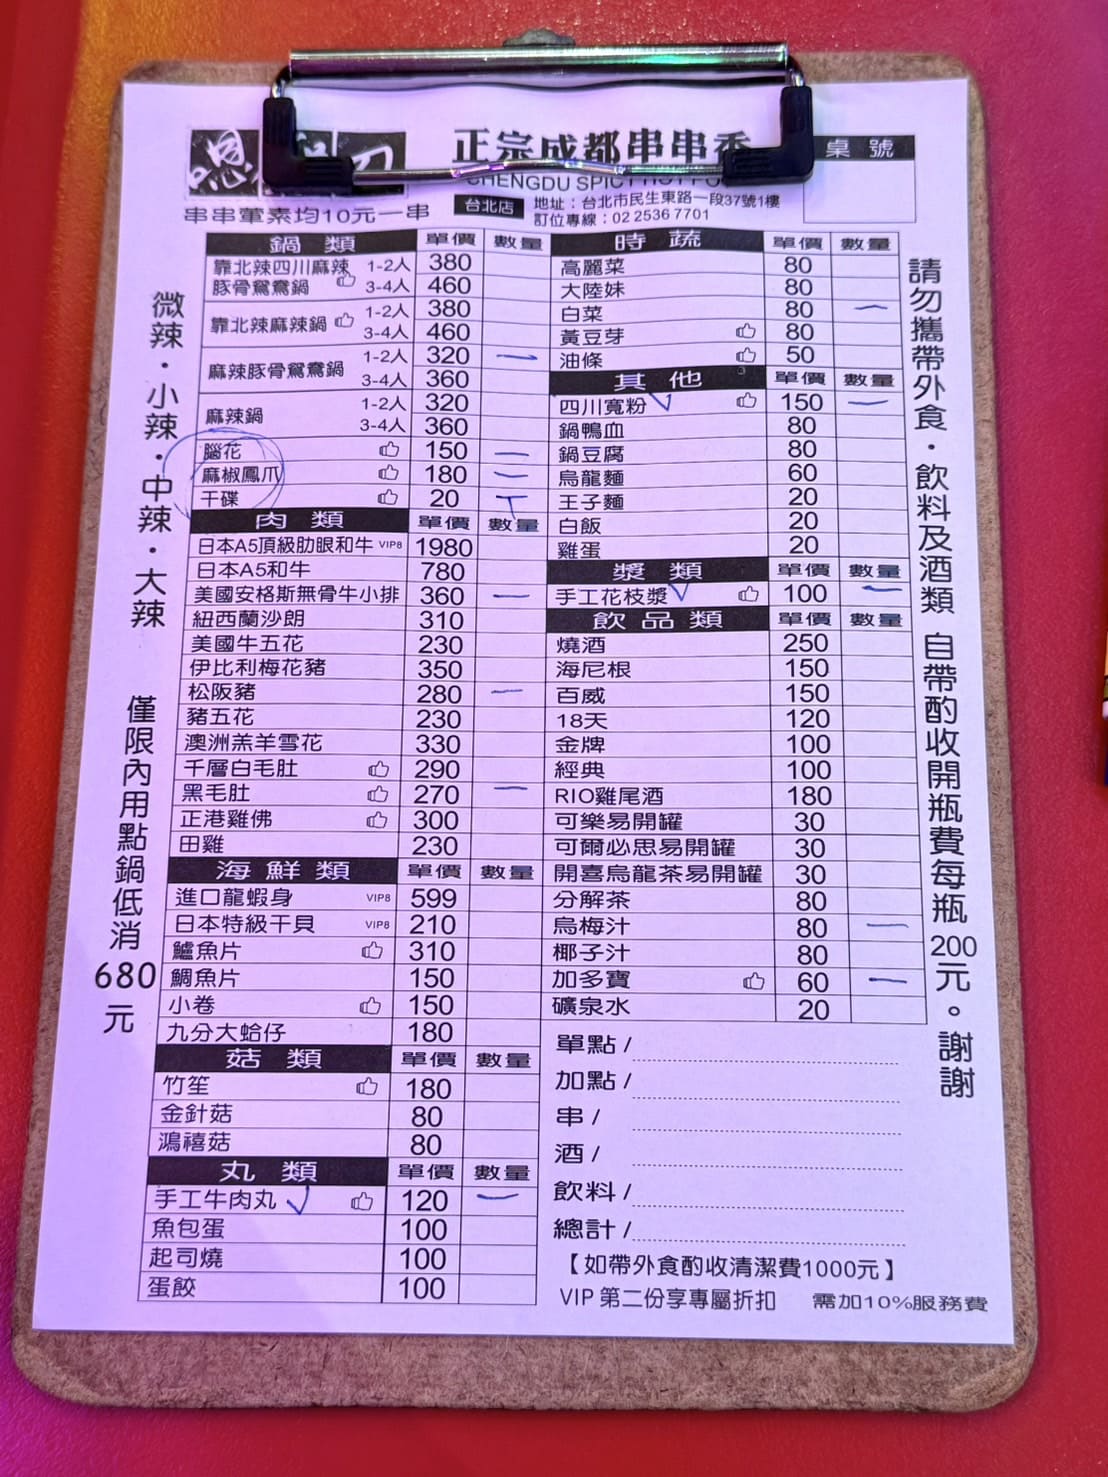 恩
正宗成都串串香
CHENGDU SPICY HOT PO
桌號
串串葷素均10元一串
台北店
地址：台北市民生東路一段37號1樓
訂位專線：02 2536 7701
微辣・小辣・中辣・大辣
僅限內用點鍋低消680元
鍋類 單價 數量
靠北辣四川麻辣豚骨鴛鴦鍋 1-2人 380
3-4人 460
靠北辣麻辣鍋 1-2人 380
3-4人 460
麻辣豚骨鴛鴦鍋 1-2人 320 一
3-4人 360
麻辣鍋 1-2人 320
3-4人 360
腦花 150 一
麻椒鳳爪 180 一
干碟 20 T
肉類 單價 數量
日本A5頂級肋眼和牛 VIP8 1980
日本A5和牛 780
美國安格斯無骨牛小排 360 一
紐西蘭沙朗 310
美國牛五花 230
伊比利梅花豬 350
松阪豬 280 一
豬五花 230
澳洲羔羊雪花 330
千層白毛肚 290
黑毛肚 270 一
正港雞佛 300
田雞 230
海鮮類 單價 數量
進口龍蝦身 VIP8 599
日本特級干貝 VIP8 210
鱸魚片 310
鯛魚片 150
小卷 150
九分大蛤仔 180
菇類 單價 數量
竹笙 180
金針菇 80
鴻禧菇 80
丸類 單價 數量
手工牛肉丸 ✓ 120 一
魚包蛋 100
起司燒 100
蛋餃 100
時蔬 單價 數量
高麗菜 80
大陸妹 80
白菜 80 一
黃豆芽 80
油條 50
其他 單價 數量
四川寬粉 ✓ 150 一
鍋鴨血 80
鍋豆腐 80
烏龍麵 60
王子麵 20
白飯 20
雞蛋 20
漿類 單價 數量
手工花枝漿 ✓ 100 一
飲品類 單價 數量
燒酒 250
海尼根 150
百威 150
18天 120
金牌 100
經典 100
RIO雞尾酒 180
可樂易開罐 30
可爾必思易開罐 30
開喜烏龍茶易開罐 30
分解茶 80
烏梅汁 80 一
椰子汁 80
加多寶 60 一
礦泉水 20
單點 /
加點 /
串 /
酒 /
飲料 /
總計 /
【如帶外食酌收清潔費1000元】
VIP 第二份享專屬折扣 需加10%服務費
請勿攜帶外食・飲料及酒類 自帶酌收開瓶費每瓶200元。謝謝